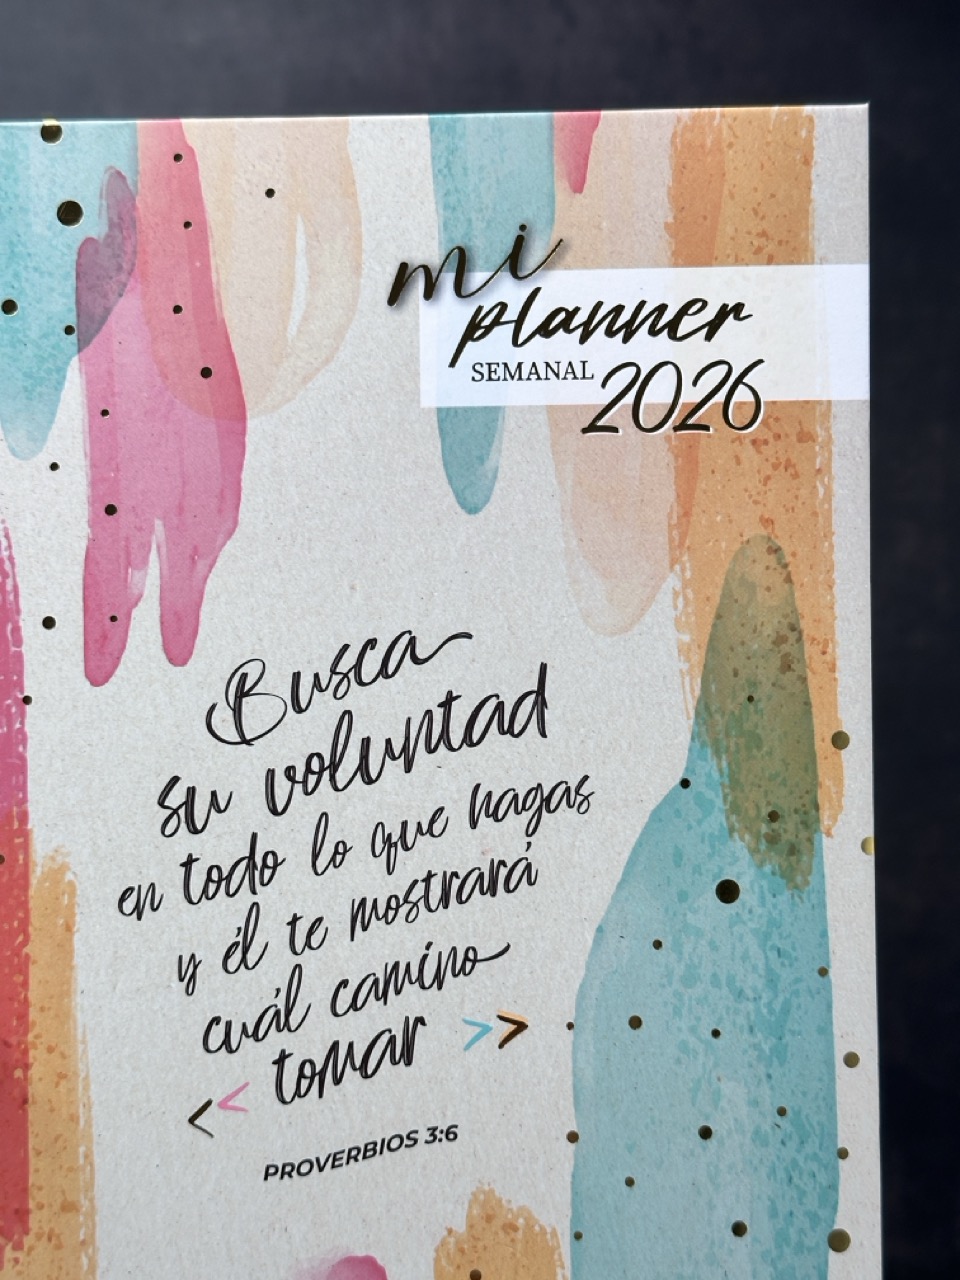 mi
planner
SEMANAL 2026
Busca
su voluntad
en todo lo que hagas
y él te mostrará
cuál camino
tomar
PROVERBIOS 3:6